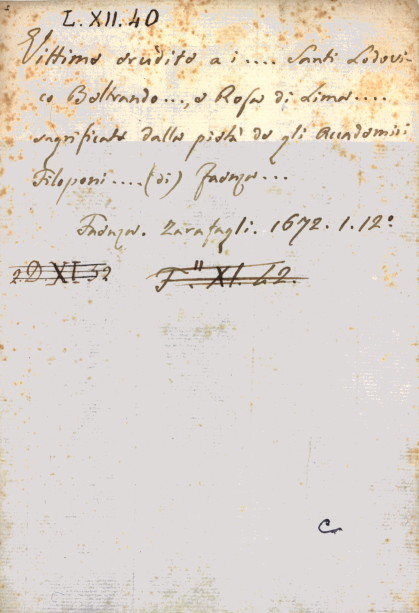 L. XII. 40
Vittime erudite a i .... Santi Lodovi-
co Beltrando..., e Rosa di Lima....
sagrificate dalla pietà de gli Accademici
Filoponi .... (di) Faenza...
Faenza. Zarafagli. 1672. 1. 12°
2 D XI 52 F." XI. 42.
C